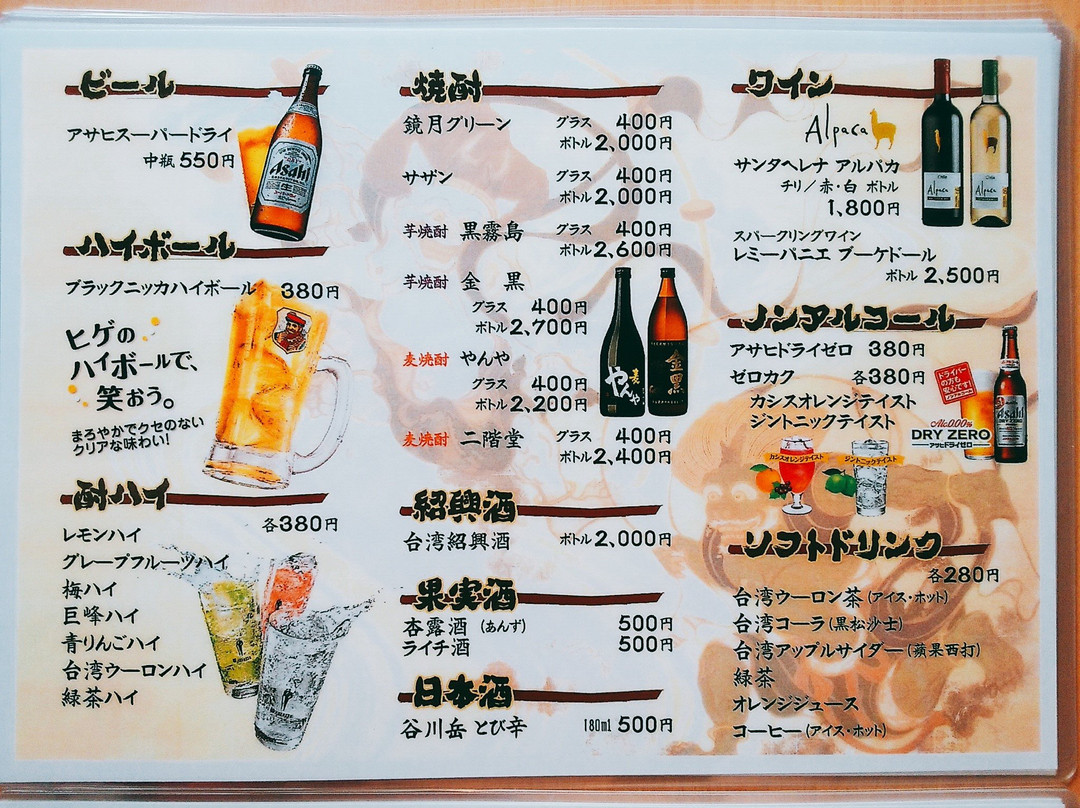 ビール
アサヒスーパードライ
中瓶 550円
Asahi
ハイボール
ブラックニッカハイボール 380円
ヒゲの
ハイボールで、
笑おう。
まろやかでクセのない
クリアな味わい!
酎ハイ
各380円
レモンハイ
グレープフルーツハイ
梅ハイ
巨峰ハイ
青りんごハイ
台湾ウーロンハイ
緑茶ハイ
焼酎
鏡月グリーン グラス 400円
ボトル 2,000円
サザン グラス 400円
ボトル 2,000円
芋焼酎 黒霧島 グラス 400円
ボトル 2,600円
芋焼酎 金黒
グラス 400円
ボトル 2,700円
麦焼酎 やんや
グラス 400円
ボトル 2,200円
麦焼酎 二階堂 グラス 400円
ボトル 2,400円
麦 やんや
金黒
紹興酒
台湾紹興酒 ボトル 2,000円
果実酒
杏露酒 (あんず) 500円
ライチ酒 500円
日本酒
谷川岳 とび辛 180ml 500円
ワイン
Alpaca
サンタヘレナ アルパカ
チリ/赤・白 ボトル
1,800円
Alpaca
Alpaca
スパークリングワイン
レミーパニエ ブーケドール
ボトル 2,500円
ノンアルコール
アサヒドライゼロ 380円
ゼロカク 各380円
カシスオレンジテイスト
ジントニックテイスト
ドライバー
の方も
安心です!
Alc.0.00%
DRY ZERO
アサヒドライゼロ
Asahi
DRY ZERO
カシスオレンジテイスト
ジントニックテイスト
ソフトドリンク
各280円
台湾ウーロン茶 (アイス・ホット)
台湾コーラ (黒松沙士)
台湾アップルサイダー (蘋果西打)
緑茶
オレンジジュース
コーヒー (アイス・ホット)